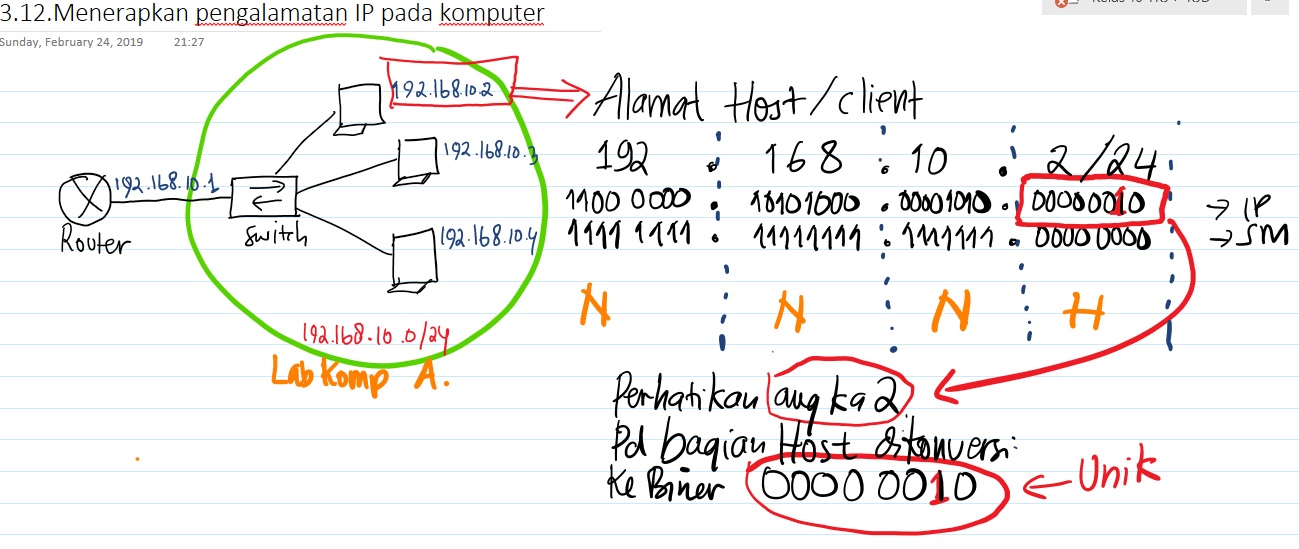 3.12.Menerapkan pengalamatan IP pada komputer
Sunday, February 24, 2019 21:27
192.168.10.2
Alamat Host/client
192.168.10.3
192.168.10.1
192.168.10.4
Router
Switch
192.168.10.0/24
Lab Komp A.
192 . 168 . 10 . 2/24
1100 0000 . 10101000 . 00001010 . 00000010 → IP
1111 1111 . 11111111 . 1111111 . 0000 0000 → SM
N N N H
Perhatikan angka 2
Pd bagian Host dikonversi
Ke Biner 0000 0010 ← Unik